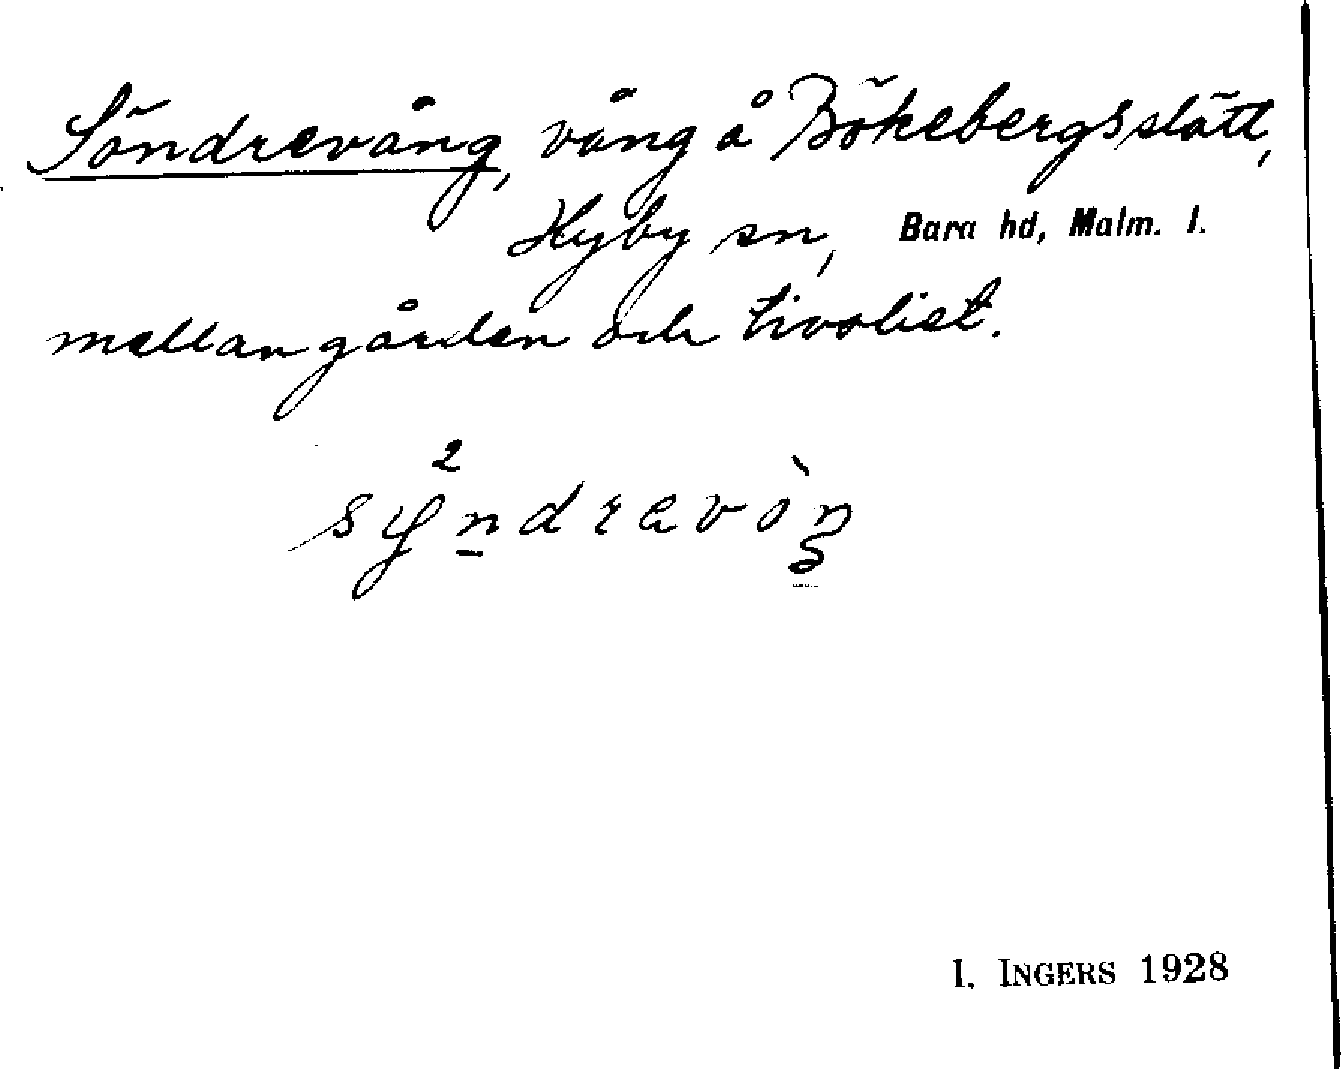 Söndrevång, vång å Bökebergsslätt,
Hyby sn, Bara hd, Malm. l.
mellan gården och tivoliet.
sy²ndravòŋ
I. INGERS 1928